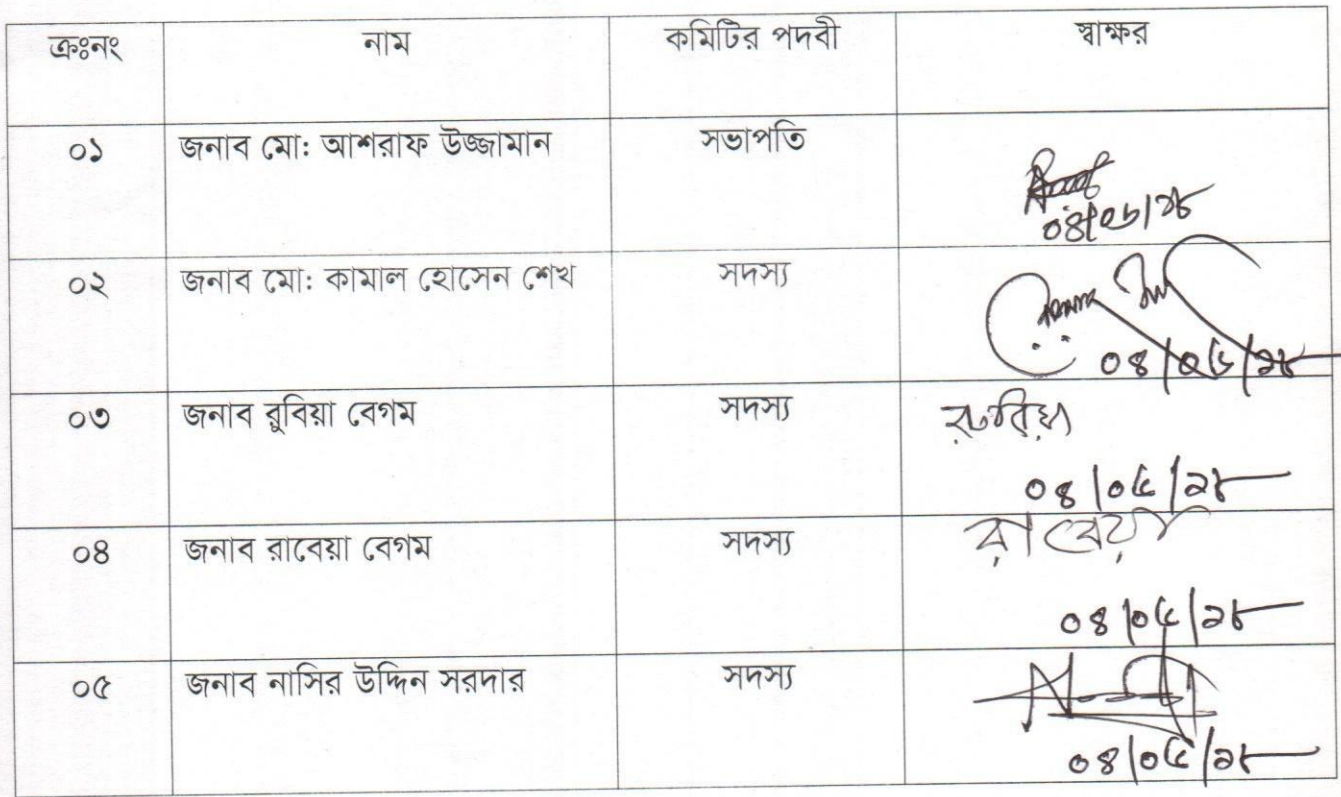 ক্রঃনং নাম কমিটির পদবী স্বাক্ষর
০১ জনাব মো: আশরাফ উজ্জামান সভাপতি
০২ জনাব মো: কামাল হোসেন শেখ সদস্য
০৩ জনাব রুবিয়া বেগম সদস্য রুবিয়া
০৪/০৫/২৮
০৪ জনাব রাবেয়া বেগম সদস্য রাবেয়া
০৪/০৫/২৮
০৫ জনাব নাসির উদ্দিন সরদার সদস্য
০৪/০৫/২৮